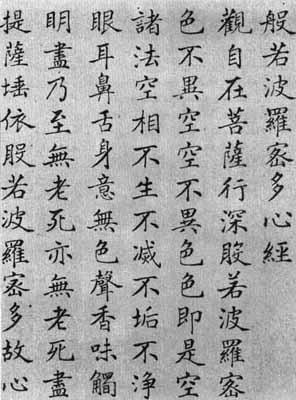 般若波羅密多心經
觀自在菩薩行深般若波羅密
色不異空空不異色色即是空
諸法空相不生不滅不垢不淨
眼耳鼻舌身意無色聲香味觸
明盡乃至無老死亦無老死盡
提薩埵依般若波羅密多故心